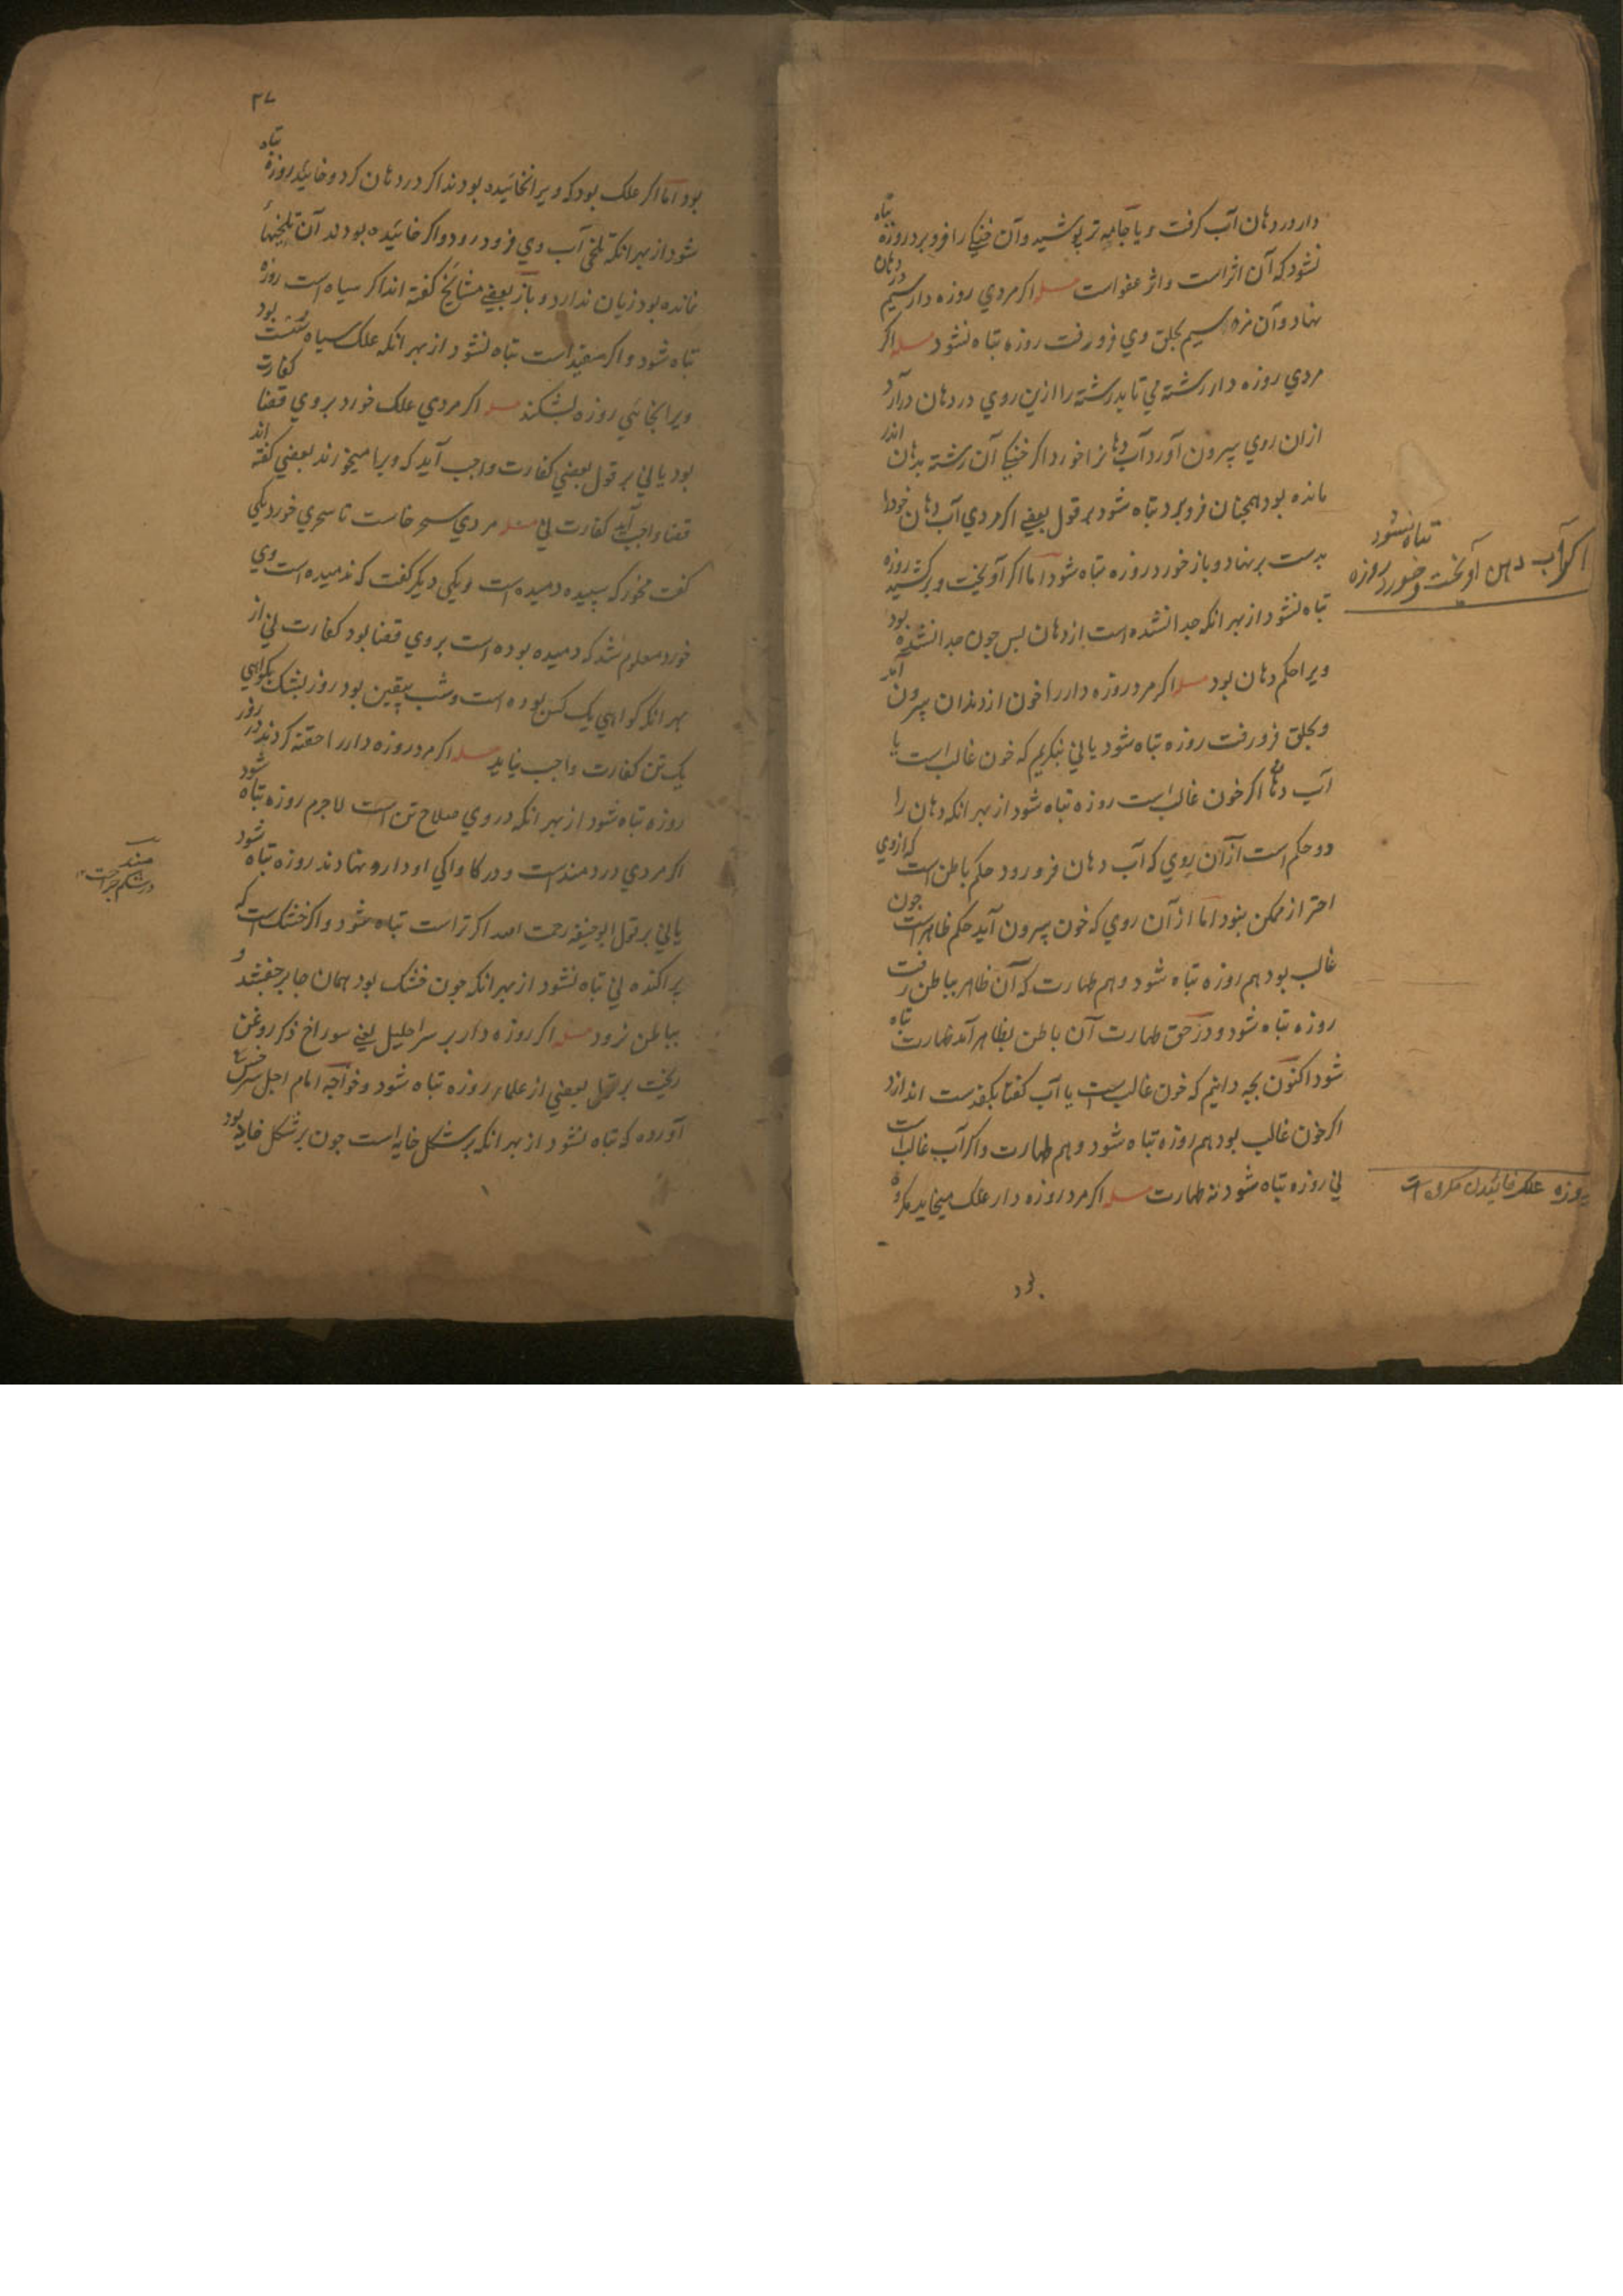 دار در دهان آب کرفت و یا جامه تر پوشید و آن خنکی را فرو برد روزه تباه
نشود که آن اثر است و اثر عفو است مسله اکر مردي روزه دار سیم در دهان
نهاد و آن مزه سیم بحلق وي فرو رفت روزه تباه نشود مسله اکر
مردي روزه دار رشته مي تابد رشته را ازین روي در دهان درآرد
ازان روي بیرون آورد آب دهانرا خورد اکر خنکي آن رشته بدهان اندر
مانده بود همچنان فرو برد تباه شود بر قول بعضي اکر مردي آب دهان خود را
بدست بر نهاد و باز خورد روزه تباه شود اما اکر آویخت و برکشید روزه
تباه نشود از بهر انکه جدا نشده است از دهان بس جون جدا نشده بود
ویرا حکم دهان بود مسله اکر مرد روزه دار را خون از دندان بیرون آمد
و بحلق فرو رفت روزه تباه شود یا ني بنکریم که خون غالب است یا
آب دهان اکر خون غالب است روزه تباه شود از بهر انکه دهان را
دو حکم است ازآن روي که آب دهان فرو رود حکم باطن است که ازوي
احتراز ممکن نبود اما از آن روي که خون بیرون آید حکم ظاهر است جون
غالب بود هم روزه تباه شود و هم طهارت که آن ظاهر بباطن رفت
روزه تباه شود و در حق طهارت آن باطن بظاهر آمد طهارت تباه
شود اکنون بچه دانیم که خون غالب است یا آب کفتا بکفدست اندازد
اکر خون غالب بود هم روزه تباه شود و هم طهارت و اکر آب غالب است
ني روزه تباه شود نه طهارت مسله اکر مرد روزه دار علک میخاید مکروه
بود
اکر آب دهن آویخت و خورد روزه
تباه نشود
بروزه علک خائیدن مکروه است
۳۷
بود اما اکر علک بود که ویرا نخائیده بودند اکر در دهان کرد و خائید روزه تباه
شود از بهر انکه تلخي آب وي فرود رود و اکر خائیده بودند آن تلخیها
نمانده بود زیان ندارد و باز بعضي مشائخ کفته اند اکر سیاه است روزه
تباه شود و اکر سفید است تباه نشود از بهر انکه علک سیاه بود
ویرا بخائي روزه بشکند مسله اکر مردي علک خورد بروي قضا کفارت
بود یا ني بر قول بعضي کفارت واجب آید که ویرا میخورند بعضي کفته اند
قضا واجب آید کفارت ني مسله مردي سحر خاست تا سحري خورد یکي
کفت مخور که سپیده دمیده است و یکي دیکر کفت که ندمیده است وي
خورد معلوم شد که دمیده بوده است بروي قضا بود کفارت ني از
بهر انکه کواهي یک کس بوده است و شب بیقین بود روز بشک بکواهي
یک تن کفارت واجب نیاید مسله اکر مرد روزه دار را حقنه کردند در روز
روزه تباه شود از بهر انکه در وي صلاح تن است لاجرم روزه تباه شود
اکر مردي دردمند است و در کاواکي او دارو نهادند روزه تباه شود
یا ني بر قول ابوحنیفه رحمت الله اکر تر است تباه شود و اکر خشک است که
پراکنده ني تباه نشود از بهر انکه جون خشک بود همان جا بر و
بباطن نرود مسله اکر روزه دار بر سر احلیل یعني سوراخ ذکر روغن
ریخت بر قول بعضي از علما روزه تباه شود و خواجه امام اجل سرخسي
آورده که تباه نشود از بهر انکه بر شکل خایه است جون بر شکل خایه بود
مند
در شکم جراحت